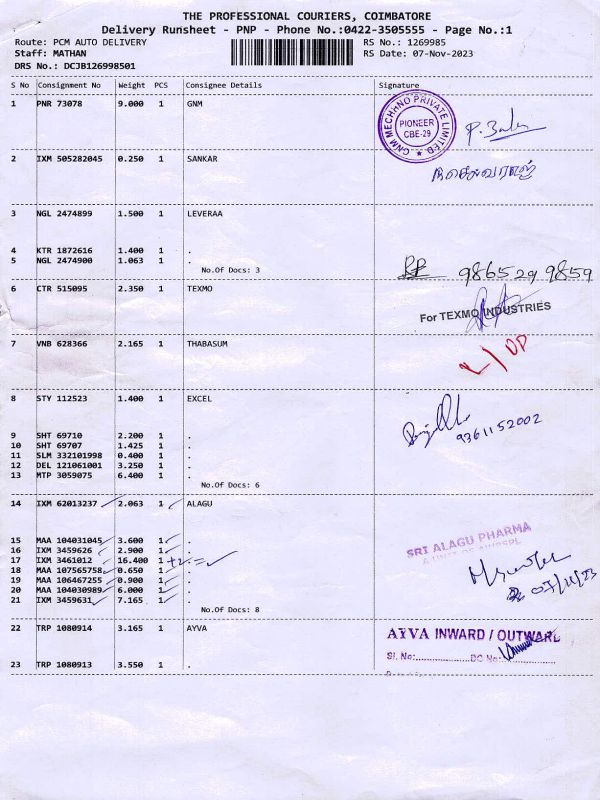 THE PROFESSIONAL COURIERS, COIMBATORE
Delivery Runsheet - PNP - Phone No.:0422-3505555 - Page No.:1
Route: PCM AUTO DELIVERY RS No.: 1269985
Staff: MATHAN RS Date: 07-Nov-2023
DRS No.: DCJB126998501
S No Consignment No Weight PCS Consignee Details Signature
1 PNR 73078 9.000 1 GNM
GNM MECHHNO PRIVATE LIMITED
PIONEER
CBE-29
2 IXM 505282045 0.250 1 SANKAR
3 NGL 2474899 1.500 1 LEVERAA
4 KTR 1872616 1.400 1 .
5 NGL 2474900 1.063 1 .
No.Of Docs: 3
986529 9859
6 CTR 515095 2.350 1 TEXMO
For TEXMO INDUSTRIES
7 VNB 628366 2.165 1 THABASUM
8 STY 112523 1.400 1 EXCEL
9361152002
9 SHT 69710 2.200 1 .
10 SHT 69707 1.425 1 .
11 SLM 332101998 0.400 1 .
12 DEL 121061001 3.250 1 .
13 MTP 3059075 6.400 1 .
No.Of Docs: 6
14 IXM 62013237 2.063 1 ALAGU
15 MAA 104031045 3.600 1 .
16 IXM 3459626 2.900 1 .
17 IXM 3461012 16.400 1
18 MAA 107565758 0.650 1 .
19 MAA 106467255 0.900 1 .
20 MAA 104030989 6.000 1 .
21 IXM 3459631 7.165 1 .
No.Of Docs: 8
SRI ALAGU PHARMA
07/11/23
22 TRP 1080914 3.165 1 AYVA
AYVA INWARD / OUTWARD
Sl. No:....................DC No:
23 TRP 1080913 3.550 1 .